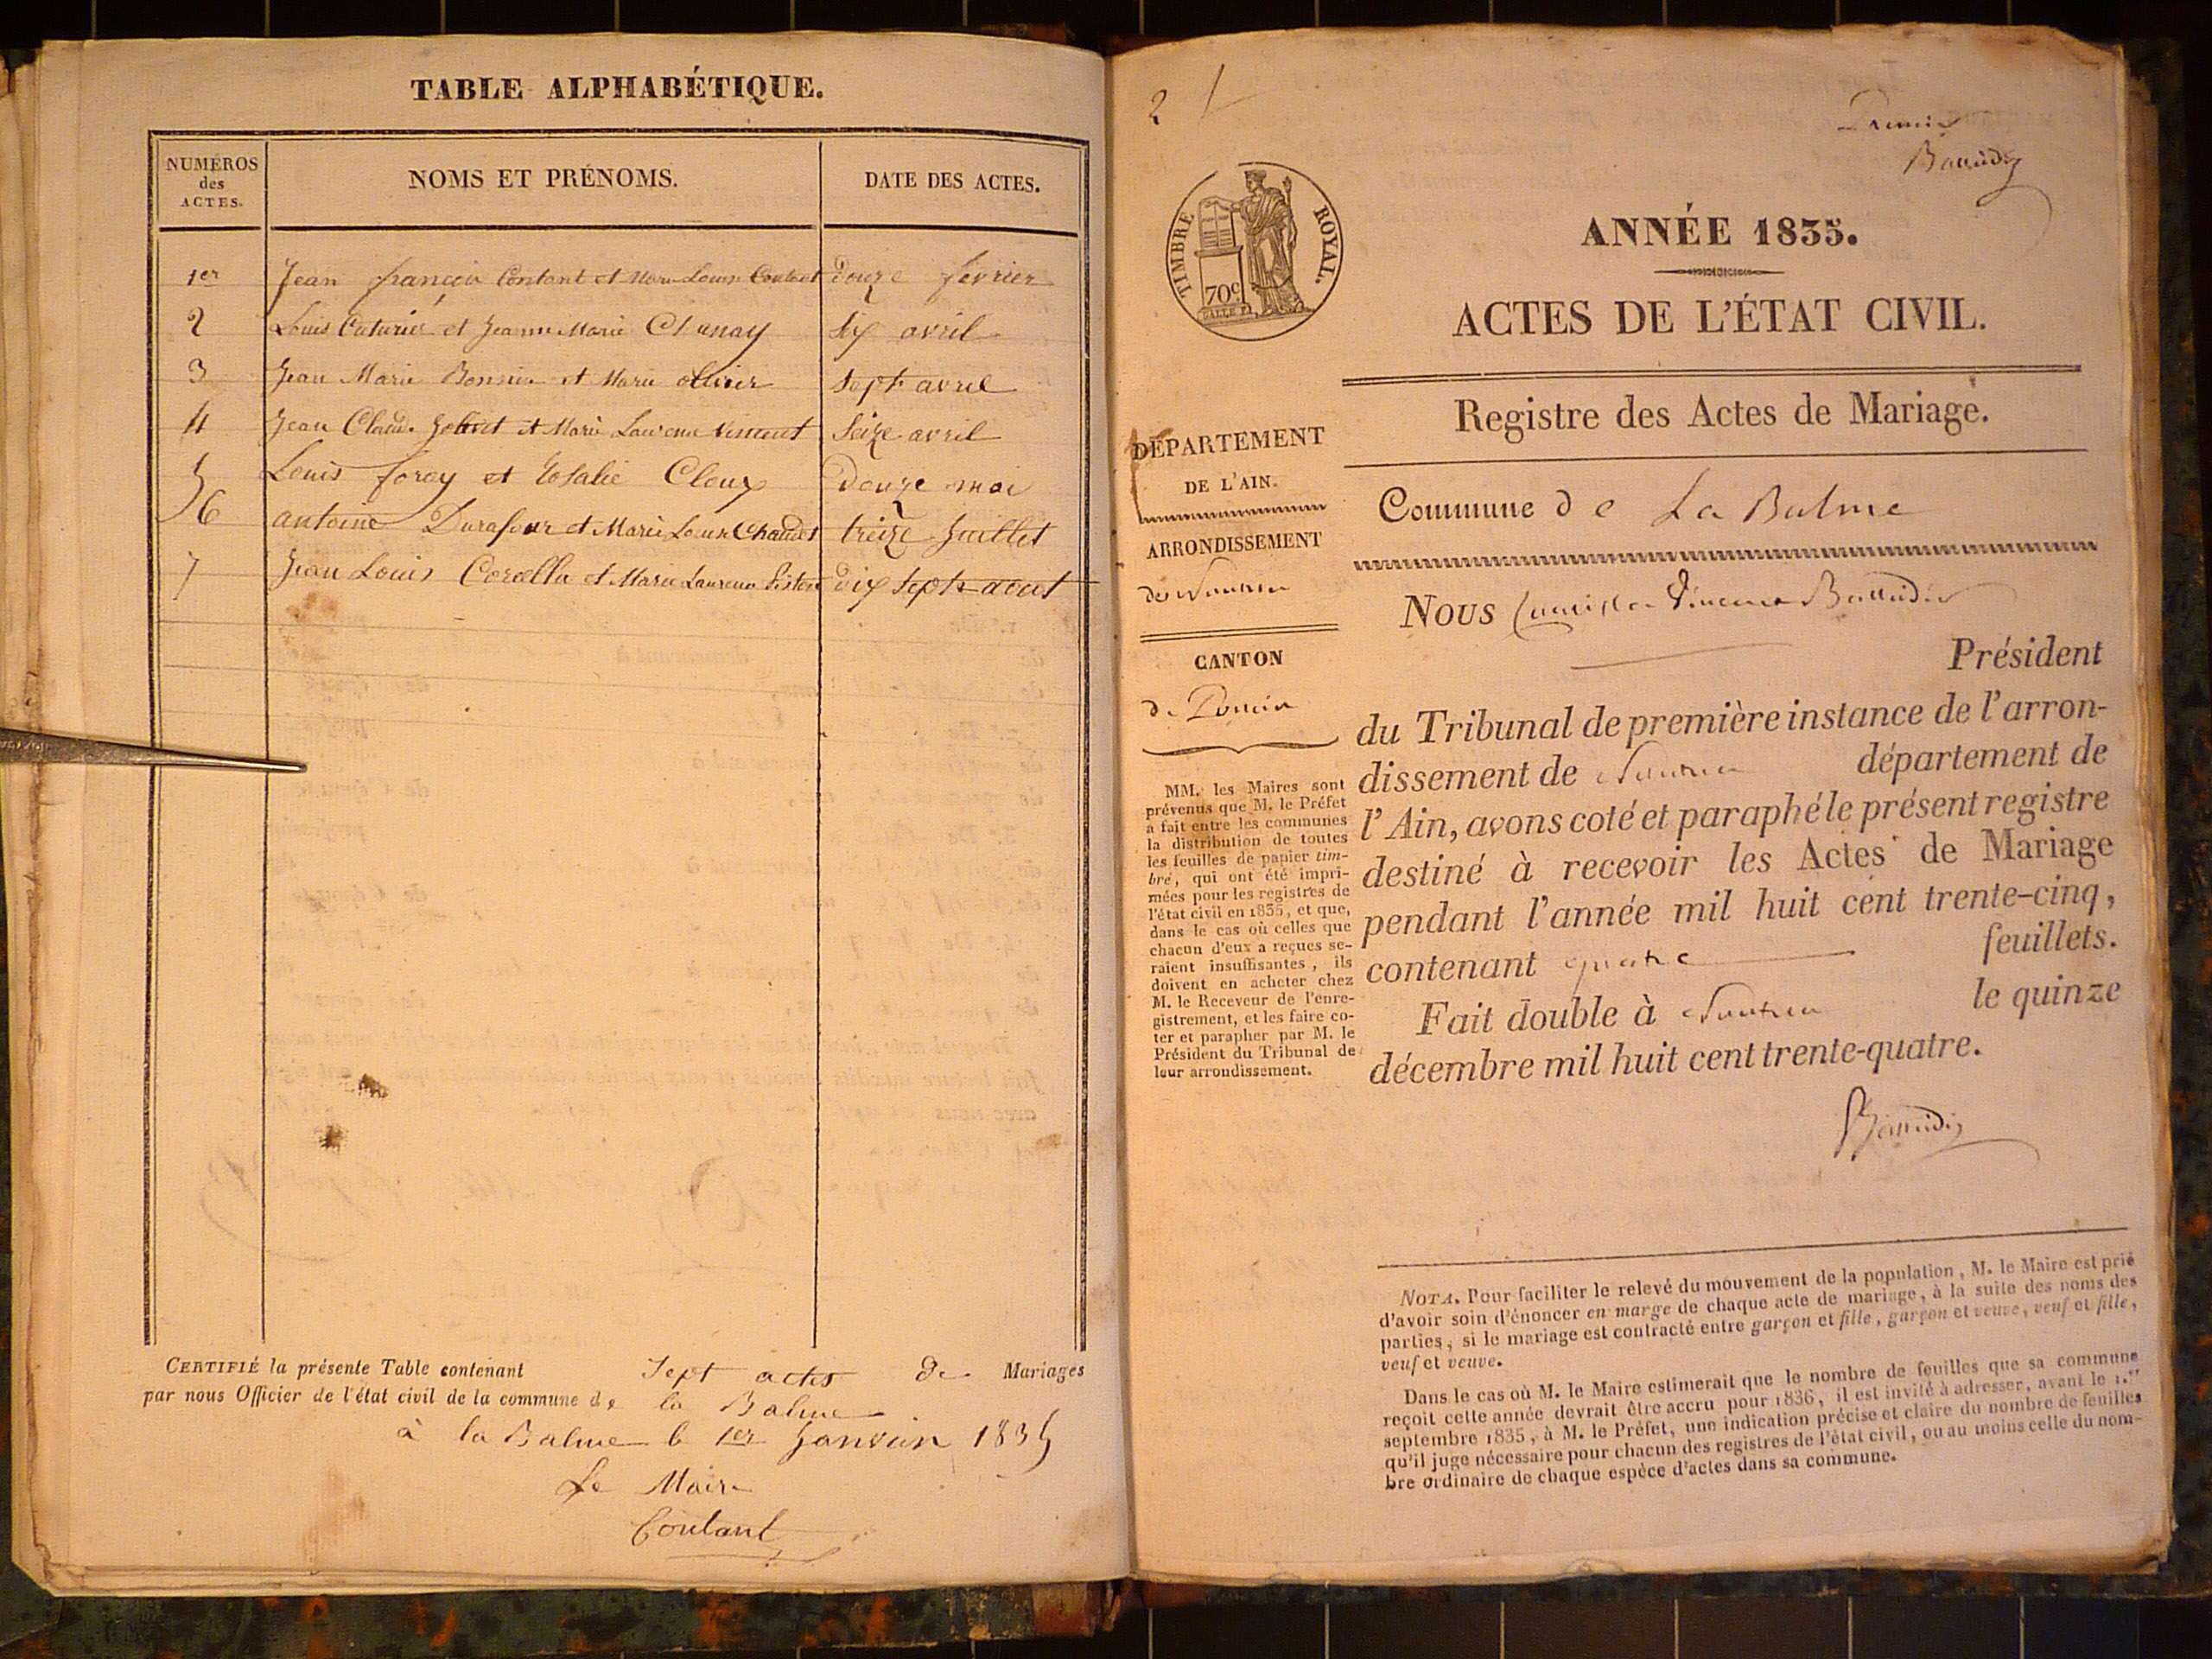 TABLE ALPHABÉTIQUE.
NUMÉROS
des
ACTES.
NOMS ET PRÉNOMS.
DATE DES ACTES.
1er Jean françois Contant et Marie Louise Contant douze fevrier
2 Louis et Jeanne Marie Chanay six avril
3 Jean Marie et Marie olivier sept avril
4 Jean Claude et Marie Laurence Vincent Seize avril
5 Louis forey et Rosalie Cloux Douze mai
6 antoine Durafour et Marie Louise treize Juillet
7 Jean Louis Corcella et Marie Laurence dix sept aout
CERTIFIÉ la présente Table contenant Sept actes de Mariages
par nous Officier de l'état civil de la commune de la Balme
à la Balme le 1er Janvier 1835
Le Maire
Contant
2
Premier
TIMBRE
ROYAL.
70c
ANNÉE 1835.
ACTES DE L'ÉTAT CIVIL.
Registre des Actes de Mariage.
DÉPARTEMENT
DE L'AIN.
ARRONDISSEMENT
de Nantua
CANTON
de Poncin
MM. les Maires sont
prévenus que M. le Préfet
a fait entre les communes
la distribution de toutes
les feuilles de papier tim-
bré, qui ont été impri-
mées pour les registres de
l'état civil en 1835, et que,
dans le cas où celles que
chacun d'eux a reçues se-
raient insuffisantes, ils
doivent en acheter chez
M. le Receveur de l'enre-
gistrement, et les faire co-
ter et parapher par M. le
Président du Tribunal de
leur arrondissement.
Commune de La Balme
Nous
Président
du Tribunal de première instance de l'arron-
dissement de Nantua département de
l'Ain, avons coté et paraphé le présent registre
destiné à recevoir les Actes de Mariage
pendant l'année mil huit cent trente-cinq,
contenant quatre feuillets.
Fait double à Nantua le quinze
décembre mil huit cent trente-quatre.
NOTA. Pour faciliter le relevé du mouvement de la population, M. le Maire est prié
d'avoir soin d'énoncer en marge de chaque acte de mariage, à la suite des noms des
parties, si le mariage est contracté entre garçon et fille, garçon et veuve, veuf et fille,
veuf et veuve.
Dans le cas où M. le Maire estimerait que le nombre de feuilles que sa commune
reçoit cette année devrait être accru pour 1836, il est invité à adresser, avant le 1.er
septembre 1835, à M. le Préfet, une indication précise et claire du nombre de feuilles
qu'il juge nécessaire pour chacun des registres de l'état civil, ou au moins celle du nom-
bre ordinaire de chaque espèce d'actes dans sa commune.